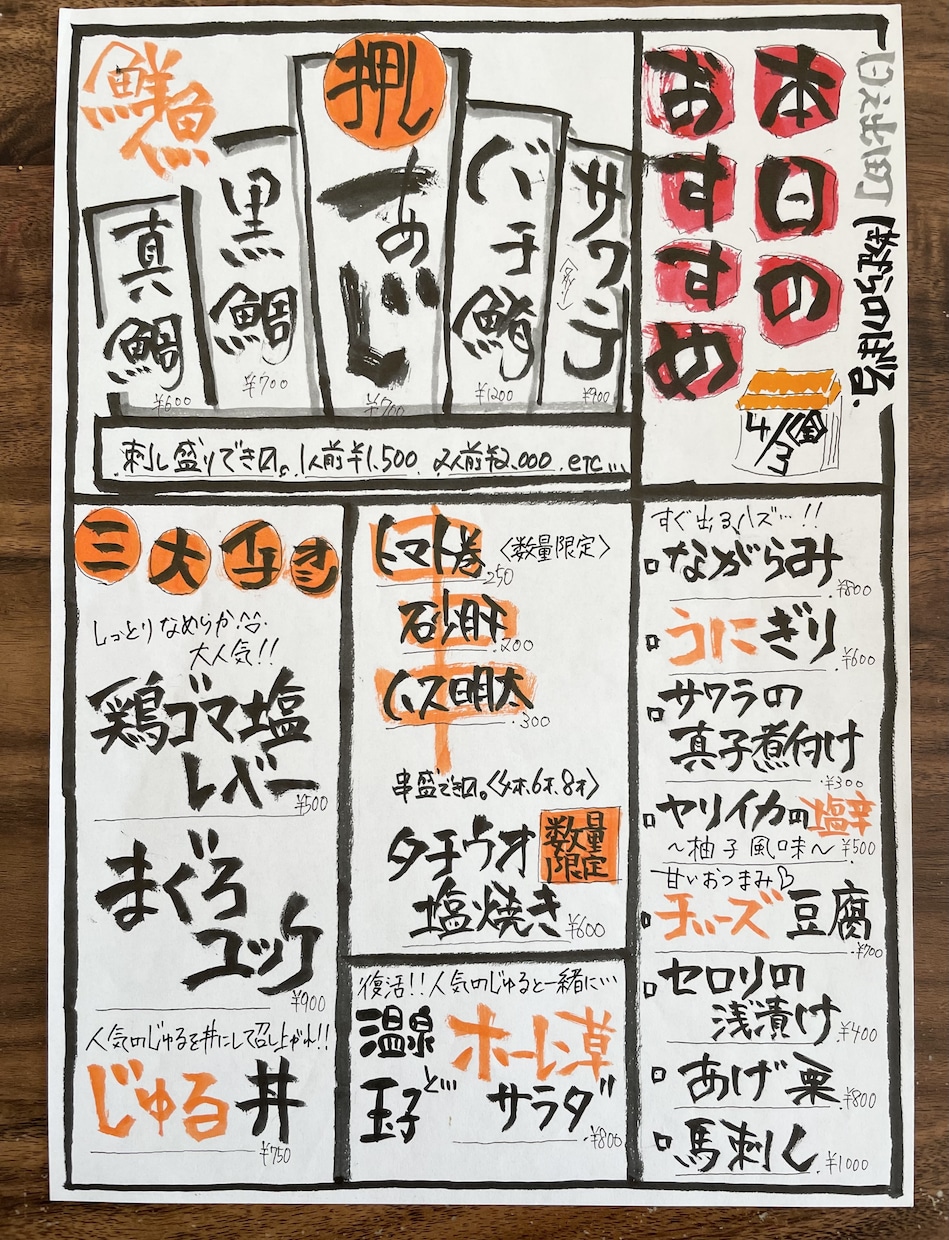 本日の
おすすめ
4/3(金)
鮮魚
サワラ
¥900
バチ鮪
¥1200
押し
あじ
¥700
黒鯛
¥700
真鯛
¥600
刺し盛りでき〼。1人前¥1.500 2人前¥2.000 etc...
三大イチオシ
しっとりなめらか
大人気!!
鶏ゴマ塩
レバー
¥500
まぐろ
ユッケ
¥900
人気のじゅるを丼にして召し上がれ!!
じゅる丼
¥750
トマト巻〈数量限定〉
250
砂肝
200
ハス明太
300
串盛でき〼。〈4本.6本.8本〉
タチウオ
数量
限定
塩焼き
¥600
復活!!人気のじゅると一緒に…
温泉
玉子
と…
ホーレン草
サラダ
¥800
すぐ出る、ハズ…!!
ながらみ
¥800
うにぎり
¥600
サワラの
真子煮付け
¥300
ヤリイカの塩辛
〜柚子風味〜 ¥500
甘いおつまみ♡
チーズ豆腐
¥700
セロリの
浅漬け
¥400
あげ栗
¥800
馬刺し
¥1000